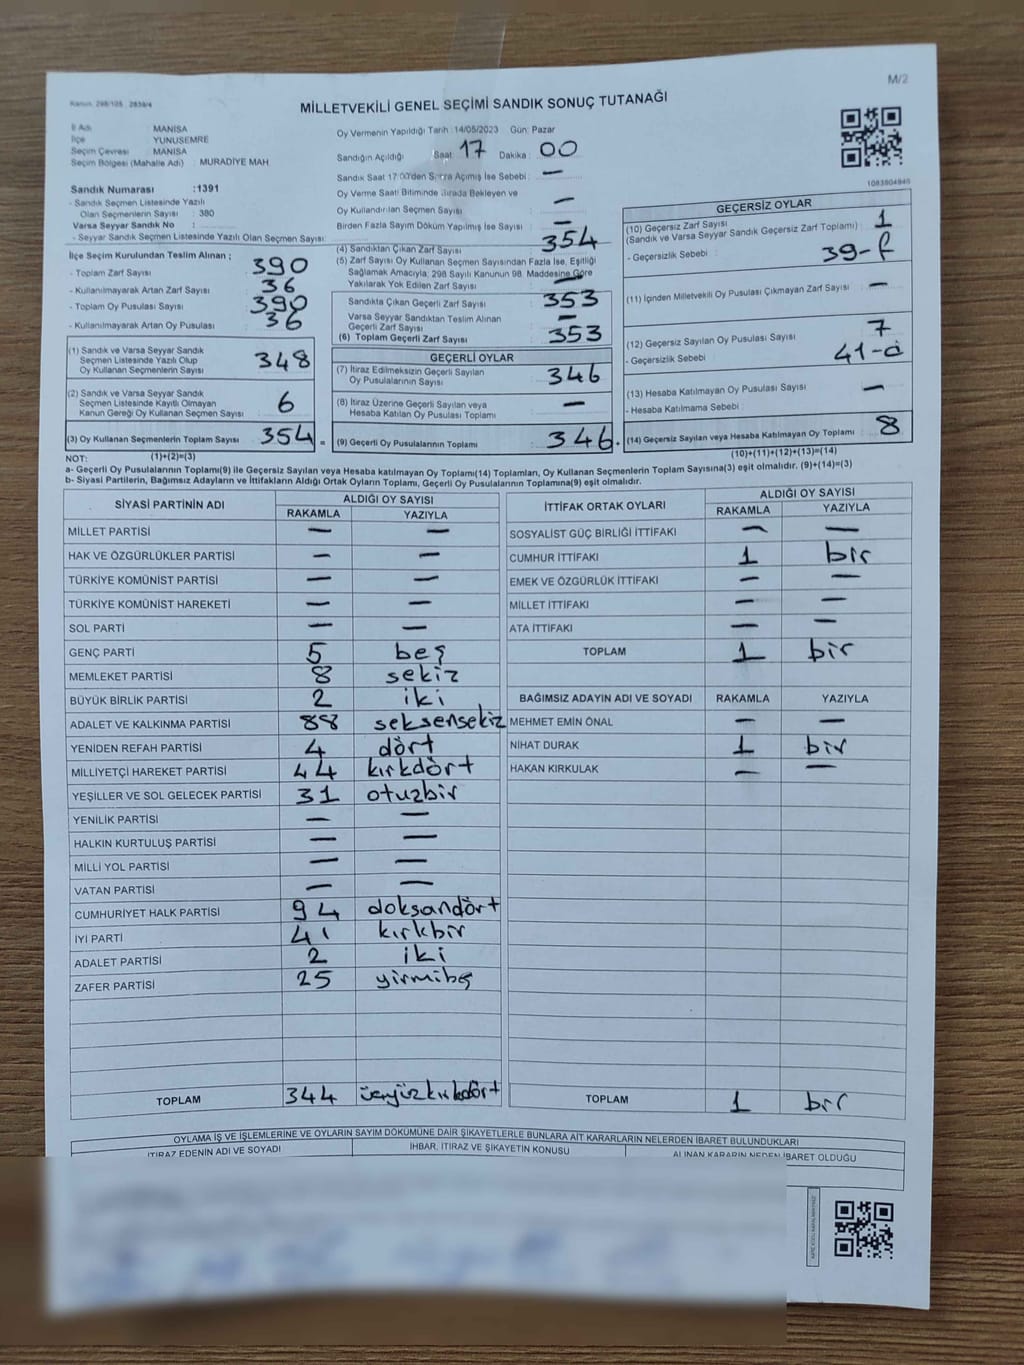 M/2
Kanun: 298/105 , 2839/4
MİLLETVEKİLİ GENEL SEÇİMİ SANDIK SONUÇ TUTANAĞI
İl Adı : MANİSA
İlçe : YUNUSEMRE
Seçim Çevresi : MANİSA
Seçim Bölgesi (Mahalle Adı) : MURADİYE MAH
Sandık Numarası :1391
- Sandık Seçmen Listesinde Yazılı
Olan Seçmenlerin Sayısı : 380
Varsa Seyyar Sandık No :
- Seyyar Sandık Seçmen Listesinde Yazılı Olan Seçmen Sayısı:
İlçe Seçim Kurulundan Teslim Alınan ;
- Toplam Zarf Sayısı 390
- Kullanılmayarak Artan Zarf Sayısı 36
- Toplam Oy Pusulası Sayısı 390
- Kullanılmayarak Artan Oy Pusulası 36
(1) Sandık ve Varsa Seyyar Sandık
Seçmen Listesinde Yazılı Olup
Oy Kullanan Seçmenlerin Sayısı 348
(2) Sandık ve Varsa Seyyar Sandık
Seçmen Listesinde Kayıtlı Olmayan
Kanun Gereği Oy Kullanan Seçmen Sayısı 6
(3) Oy Kullanan Seçmenlerin Toplam Sayısı 354 =
(1)+(2)=(3)
Oy Vermenin Yapıldığı Tarih :14/05/2023 Gün: Pazar
Sandığın Açıldığı Saat 17 Dakika : 00
Sandık Saat 17:00'den Sonra Açılmış İse Sebebi : —
Oy Verme Saati Bitiminde Sırada Bekleyen ve
Oy Kullandırılan Seçmen Sayısı —
Birden Fazla Sayım Döküm Yapılmış İse Sayısı : —
(4) Sandıktan Çıkan Zarf Sayısı 354
(5) Zarf Sayısı Oy Kullanan Seçmen Sayısından Fazla İse, Eşitliği
Sağlamak Amacıyla, 298 Sayılı Kanunun 98. Maddesine Göre
Yakılarak Yok Edilen Zarf Sayısı —
Sandıkta Çıkan Geçerli Zarf Sayısı 353
Varsa Seyyar Sandıktan Teslim Alınan
Geçerli Zarf Sayısı —
(6) Toplam Geçerli Zarf Sayısı 353
GEÇERLİ OYLAR
(7) İtiraz Edilmeksizin Geçerli Sayılan
Oy Pusulalarının Sayısı 346
(8) İtiraz Üzerine Geçerli Sayılan veya
Hesaba Katılan Oy Pusulası Toplamı —
(9) Geçerli Oy Pusulalarının Toplamı 346
1083804948
GEÇERSİZ OYLAR
(10) Geçersiz Zarf Sayısı 1
(Sandık ve Varsa Seyyar Sandık Geçersiz Zarf Toplamı) :
- Geçersizlik Sebebi : 39-f
(11) İçinden Milletvekili Oy Pusulası Çıkmayan Zarf Sayısı —
(12) Geçersiz Sayılan Oy Pusulası Sayısı 7
- Geçersizlik Sebebi : 41-a
(13) Hesaba Katılmayan Oy Pusulası Sayısı —
- Hesaba Katılmama Sebebi
(14) Geçersiz Sayılan veya Hesaba Katılmayan Oy Toplamı 8
(10)+(11)+(12)+(13)=(14)
NOT:
a- Geçerli Oy Pusulalarının Toplamı(9) ile Geçersiz Sayılan veya Hesaba katılmayan Oy Toplamı(14) Toplamları, Oy Kullanan Seçmenlerin Toplam Sayısına(3) eşit olmalıdır. (9)+(14)=(3)
b- Siyasi Partilerin, Bağımsız Adayların ve İttifakların Aldığı Ortak Oyların Toplamı, Geçerli Oy Pusulalarının Toplamına(9) eşit olmalıdır.
SİYASİ PARTİNİN ADI ALDIĞI OY SAYISI
RAKAMLA YAZIYLA
MİLLET PARTİSİ — —
HAK VE ÖZGÜRLÜKLER PARTİSİ — —
TÜRKİYE KOMÜNİST PARTİSİ — —
TÜRKİYE KOMÜNİST HAREKETİ — —
SOL PARTİ — —
GENÇ PARTİ 5 beş
MEMLEKET PARTİSİ 8 sekiz
BÜYÜK BİRLİK PARTİSİ 2 iki
ADALET VE KALKINMA PARTİSİ 88 seksensekiz
YENİDEN REFAH PARTİSİ 4 dört
MİLLİYETÇİ HAREKET PARTİSİ 44 kırkdört
YEŞİLLER VE SOL GELECEK PARTİSİ 31 otuzbir
YENİLİK PARTİSİ — —
HALKIN KURTULUŞ PARTİSİ — —
MİLLİ YOL PARTİSİ — —
VATAN PARTİSİ — —
CUMHURİYET HALK PARTİSİ 94 doksandört
İYİ PARTİ 41 kırkbir
ADALET PARTİSİ 2 iki
ZAFER PARTİSİ 25 yirmibeş
TOPLAM 344 üçyüzkırkdört
İTTİFAK ORTAK OYLARI ALDIĞI OY SAYISI
RAKAMLA YAZIYLA
SOSYALİST GÜÇ BİRLİĞİ İTTİFAKI — —
CUMHUR İTTİFAKI 1 bir
EMEK VE ÖZGÜRLÜK İTTİFAKI — —
MİLLET İTTİFAKI — —
ATA İTTİFAKI — —
TOPLAM 1 bir
BAĞIMSIZ ADAYIN ADI VE SOYADI RAKAMLA YAZIYLA
MEHMET EMİN ÖNAL — —
NİHAT DURAK 1 bir
HAKAN KIRKULAK — —
TOPLAM 1 bir
OYLAMA İŞ VE İŞLEMLERİNE VE OYLARIN SAYIM DÖKÜMÜNE DAİR ŞİKAYETLERLE BUNLARA AİT KARARLARIN NELERDEN İBARET BULUNDUKLARI
İTİRAZ EDENİN ADI VE SOYADI İHBAR, İTİRAZ VE ŞİKAYETİN KONUSU ALINAN KARARIN NEDEN İBARET OLDUĞU